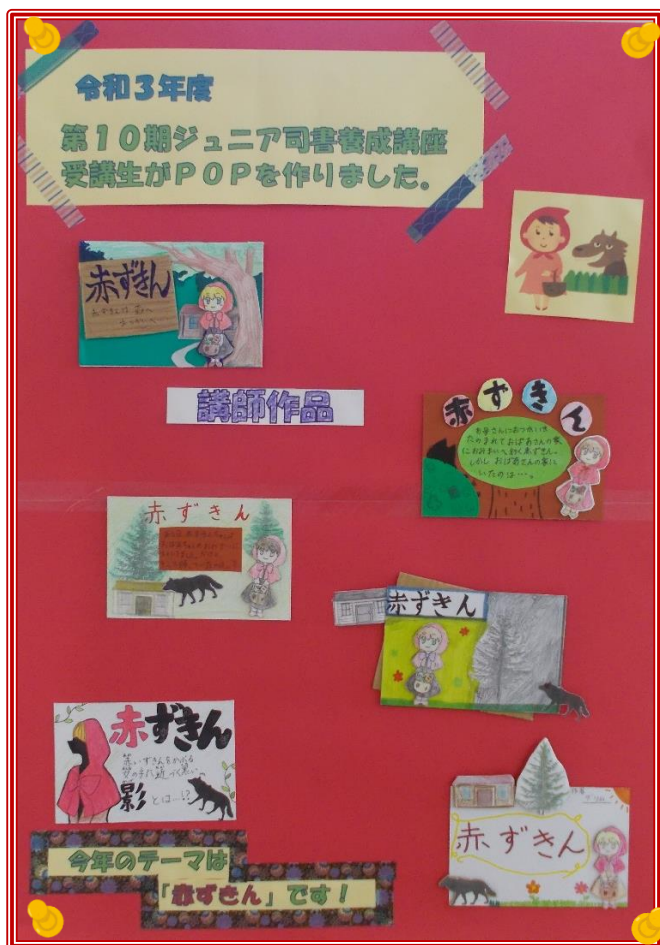 令和3年度
第10期ジュニア司書養成講座
受講生がPOPを作りました。
赤ずきん
講師作品
赤ずきん
お母さんにおつかいを
たのまれておばあさんの家
におみまいへ行く赤ずきん。
しかしおばあさんの家に
いたのは…。
赤ずきん
赤ずきん
赤ずきん
赤いずきんをかぶる
影とは…!?
赤ずきん
今年のテーマは
「赤ずきん」です!